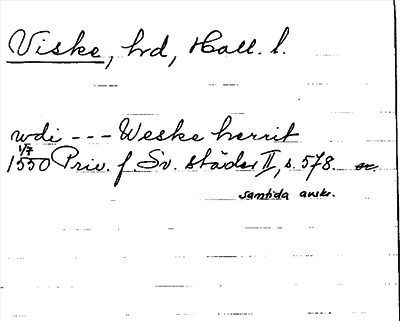 Viske, hrd, Hall. l.
wdi --- Weske herrit
1/7
1550 Priv. f. Sv. städer II, s. 578. or.
samtida avskr.